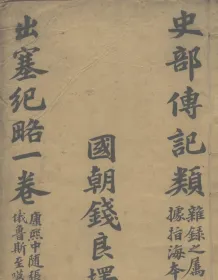 史部傳記類
雜錄之屬
據指海本
國朝錢良擇
出塞紀略一卷
康熙中隨張
俄魯斯至喀